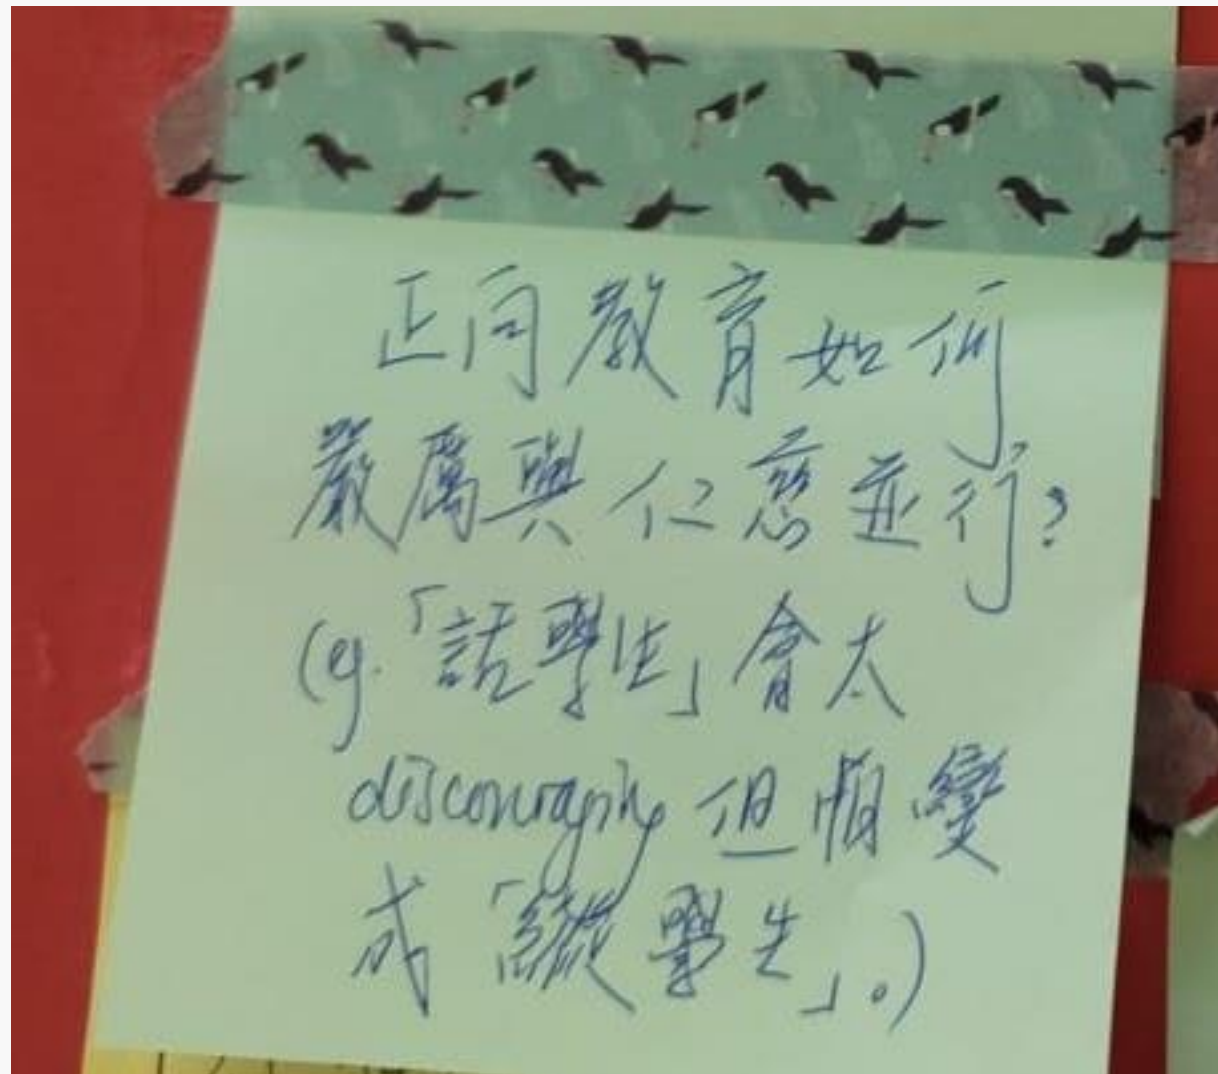 正向教育如何
嚴厲與仁慈並行?
(eg.「話學生」會太
discouraging 但怕變
成「縱學生」。)